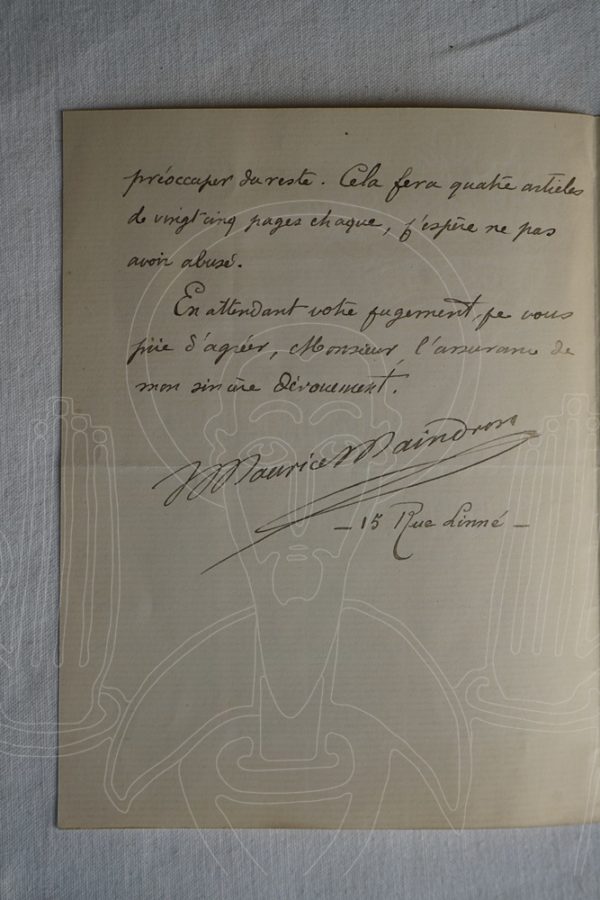 préoccuper du reste. Cela fera quatre articles
de vingt cinq pages chaque, j'espère ne pas
avoir abusé.
En attendant votre jugement, je vous
prie d'agréer, Monsieur, l'assurance de
mon sincère dévouement.
Maurice Maindron
— 15 Rue Linné —